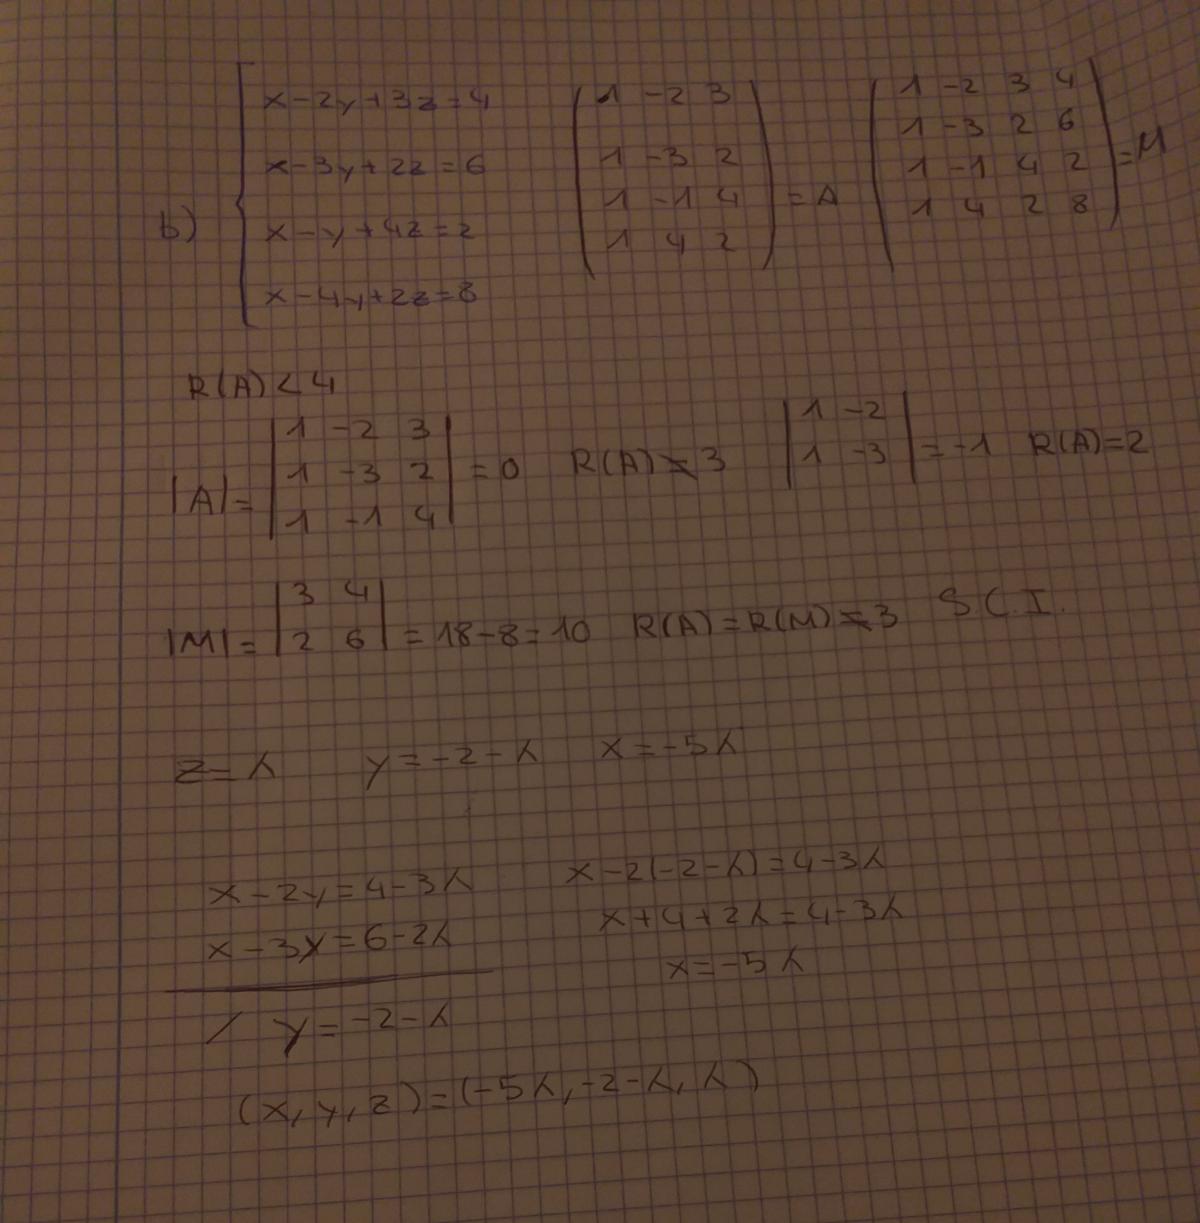 b)
x-2y+3z=4
x-3y+2z=6
x-y+4z=2
x-4y+2z=8
1 -2 3
1 -3 2
1 -1 4
1 4 2
=A
1 -2 3 4
1 -3 2 6
1 -1 4 2
1 4 2 8
=M
R(A)<4
|A|=
1 -2 3
1 -3 2
1 -1 4
=0 R(A)≠3
1 -2
1 -3
=-1 R(A)=2
|M|=
3 4
2 6
=18-8=10 R(A)=R(M)≠3 S.C.I.
z=λ y=-2-λ x=-5λ
x-2y=4-3λ
x-3y=6-2λ
/ y=-2-λ
x-2(-2-λ)=4-3λ
x+4+2λ=4-3λ
x=-5λ
(x,y,z)=(-5λ,-2-λ,λ)